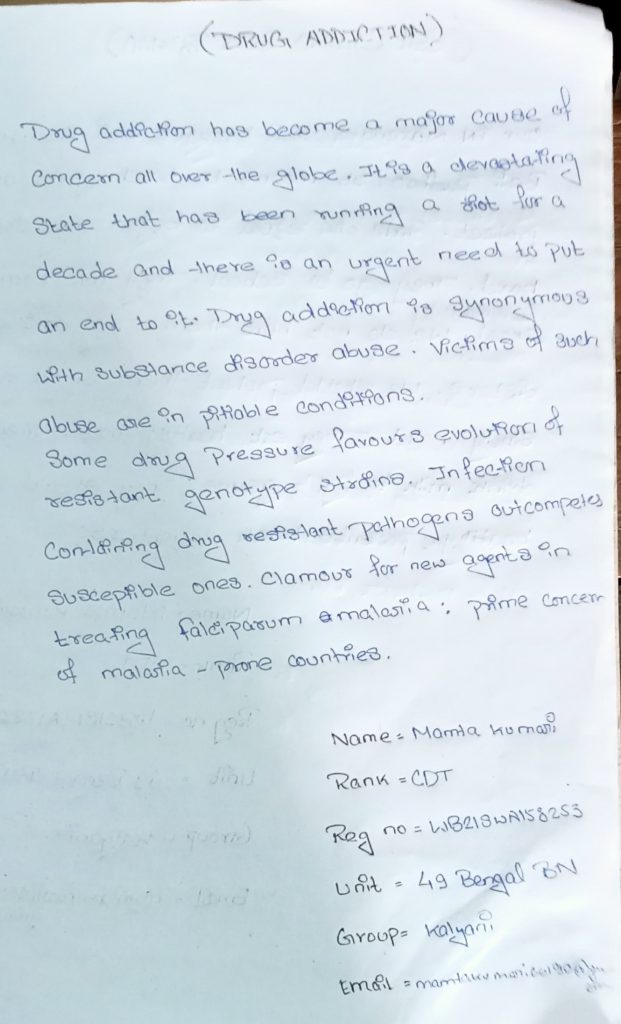 (DRUG ADDICTION)
Drug addiction has become a major cause of
concern all over the globe. It is a devastating
state that has been running a riot for a
decade and there is an urgent need to put
an end to it. Drug addiction is synonymous
with substance disorder abuse. Victims of such
abuse are in pitiable conditions.
Some drug Pressure favours evolution of
resistant genotype strains. Infection
Containing drug resistant pathogens outcompetes
susceptible ones. Clamour for new agents in
treating falciparum malaria; prime concern
of malaria - prone countries.
Name = Mamta kumari
Rank = CDT
Reg no = WB21SWA158253
Unit = 49 Bengal BN
Group = Kalyani
Email =